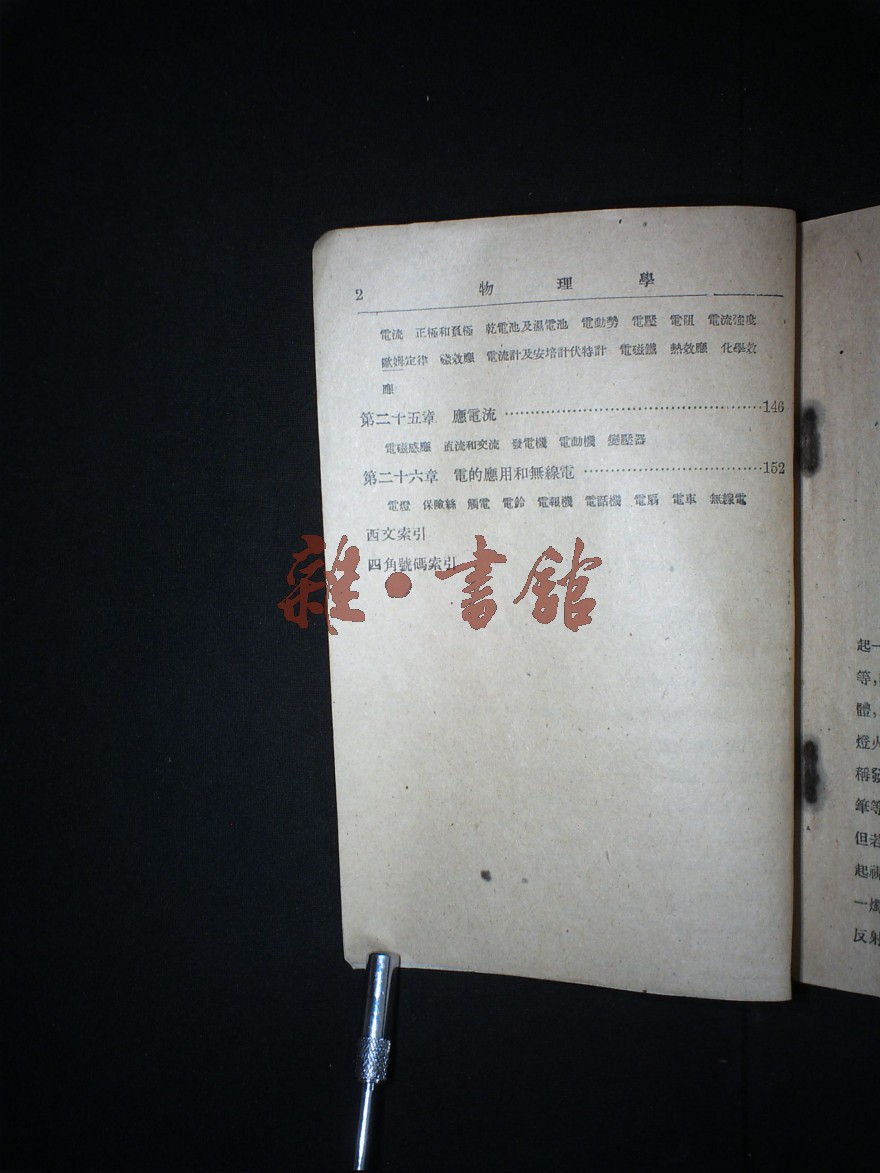 2 物理學
電流 正極和負極 乾電池及濕電池 電動勢 電壓 電阻 電流強度
歐姆定律 磁效應 電流計及安培計伏特計 電磁鐵 熱效應 化學效
應
第二十五章 應電流 146
電磁感應 直流和交流 發電機 電動機 變壓器
第二十六章 電的應用和無線電 152
電燈 保險絲 觸電 電鈴 電報機 電話機 電扇 電車 無線電
西文索引
四角號碼索引
雜·書館
起一
等,
體,
燈火
稱發
筆等
但若
起視
一燭
反射